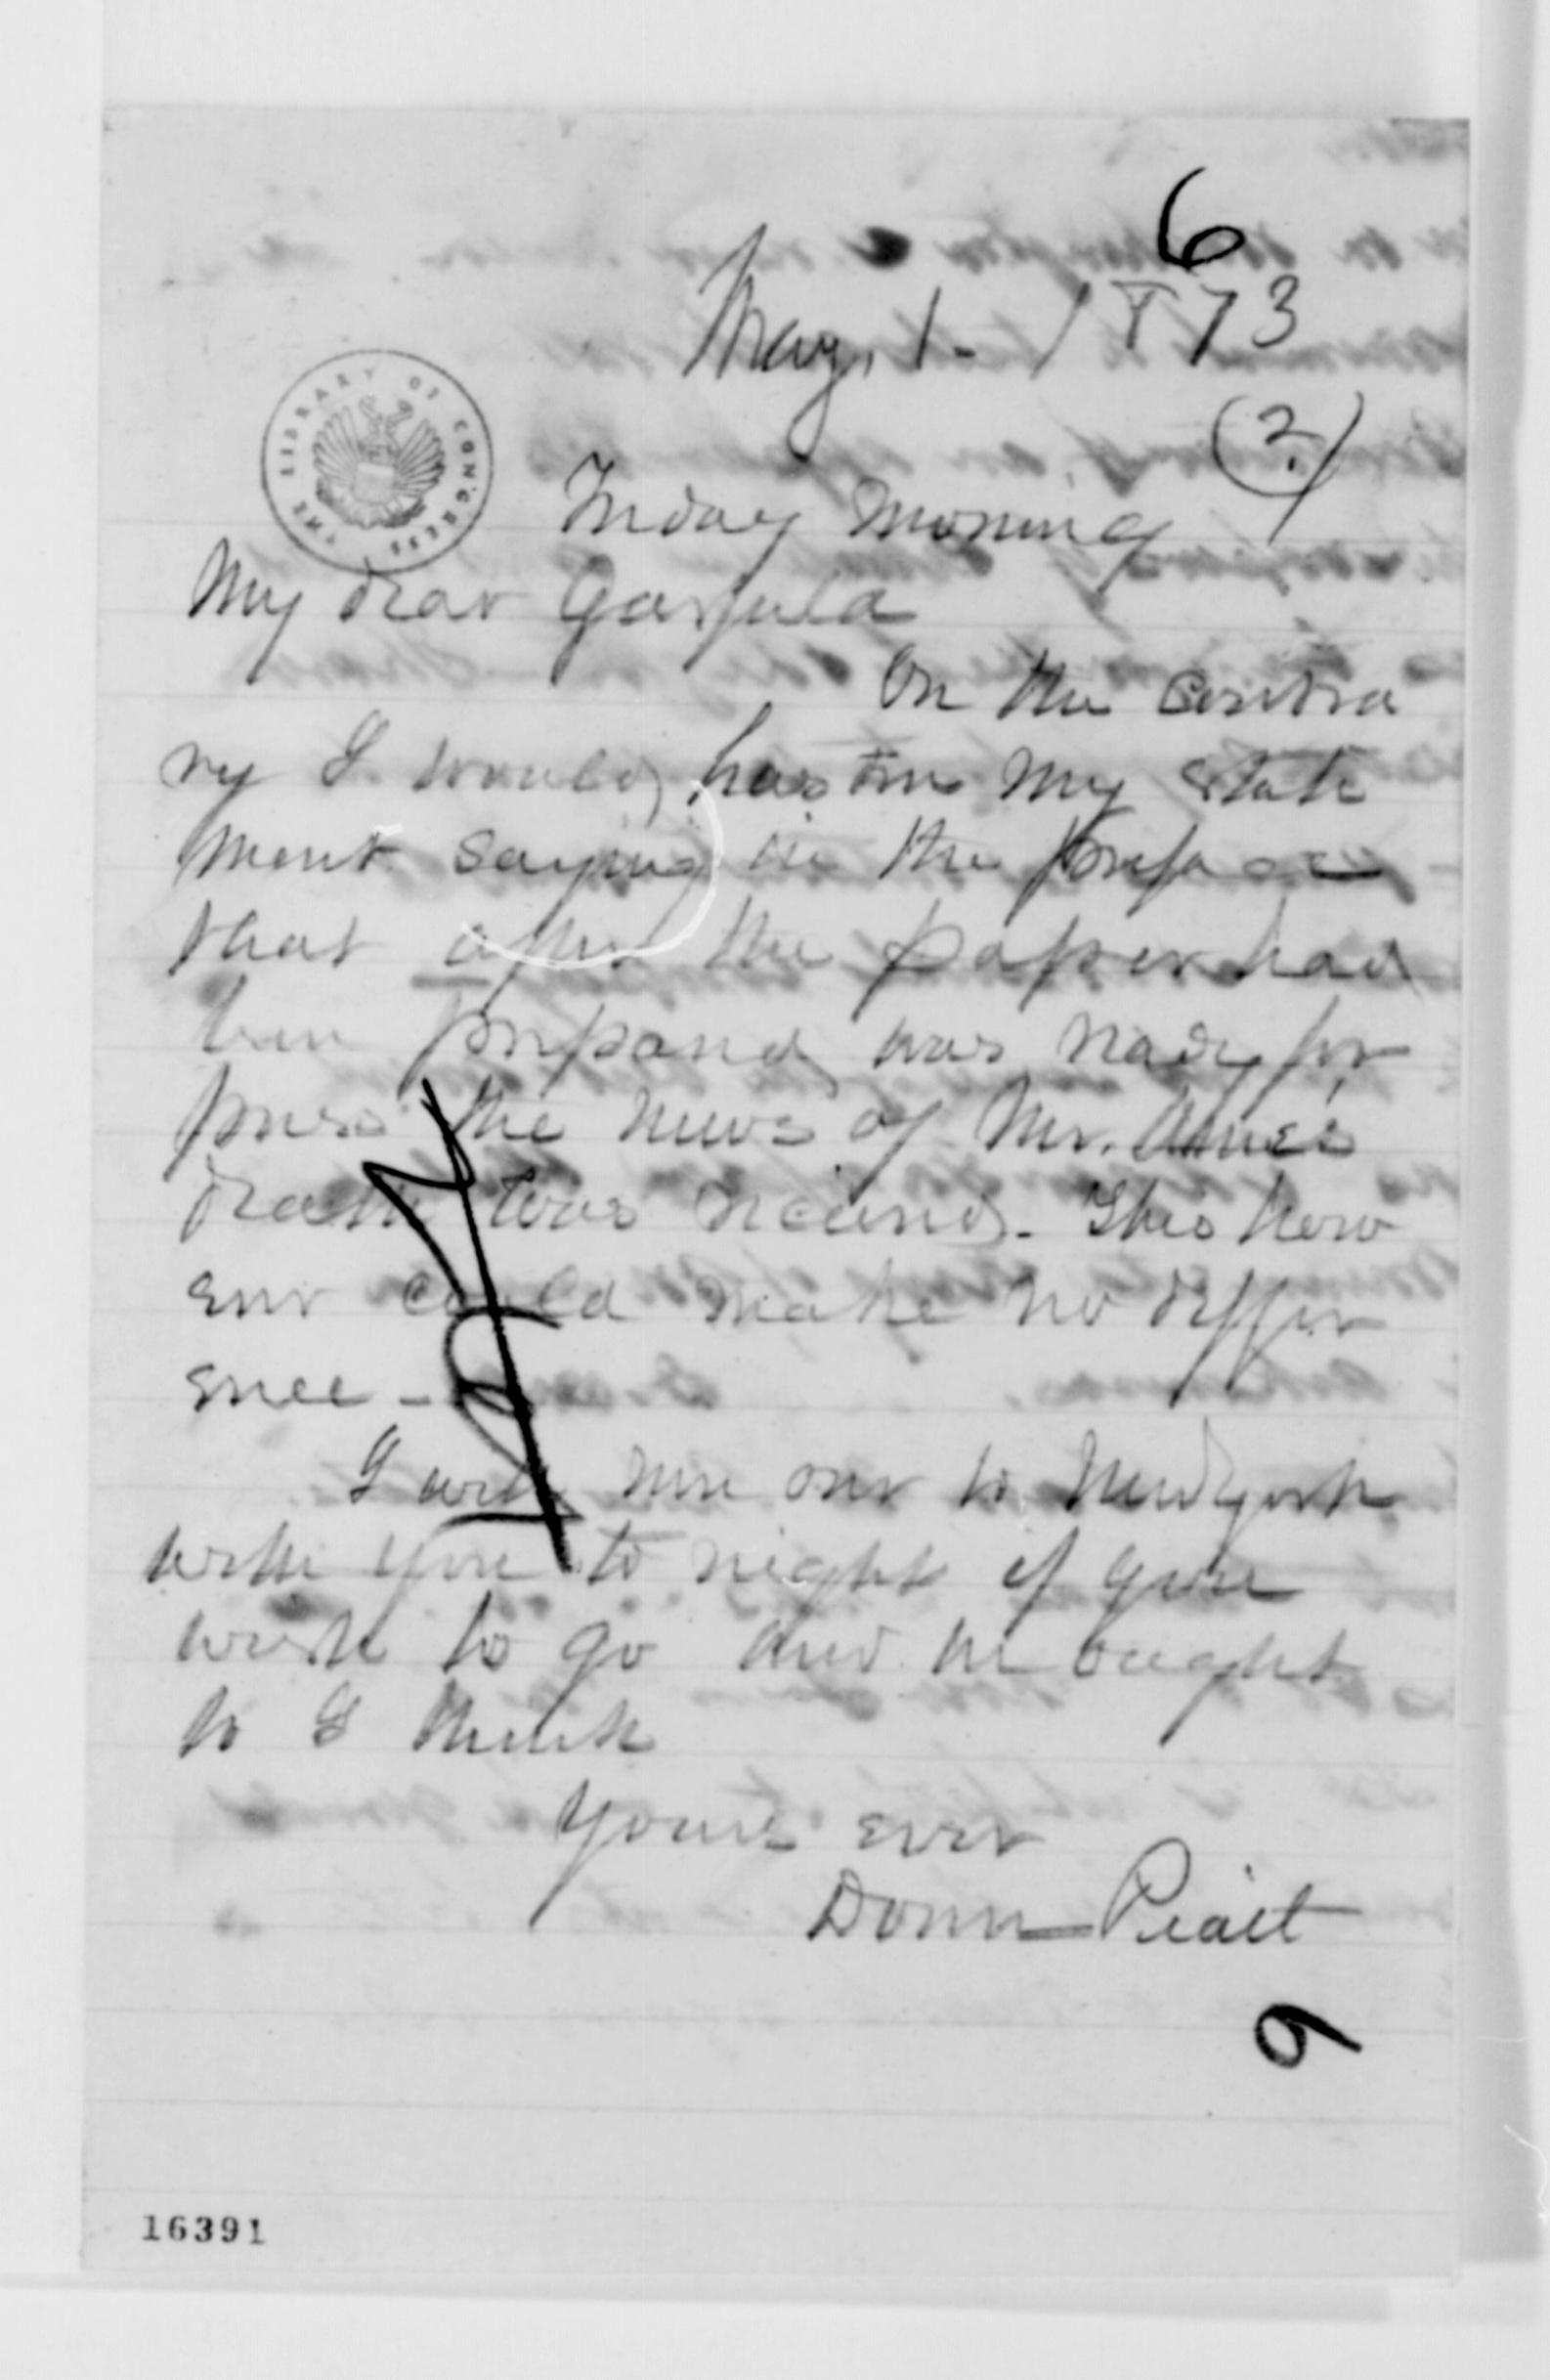 6
May, 1 - 1873
(?)
THE LIBRARY OF CONGRESS
Friday morning
My dear Garfield
On the contra
ry I would hasten my state
ment saying in the preface
that after the paper had
been prepared was ready for
press the news of Mr. Ames
death was received. This how
ever could make no differ
ence -
I will run over to New York
with you to night if you
wish to go and we ought
to I think
Yours ever
Donn Piatt
6
16391